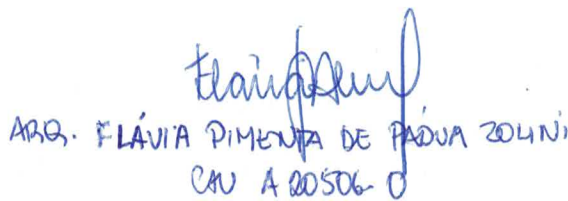 ARQ. FLÁVIA PIMENTA DE PÁDUA ZOLINI
CAU A 20506-0